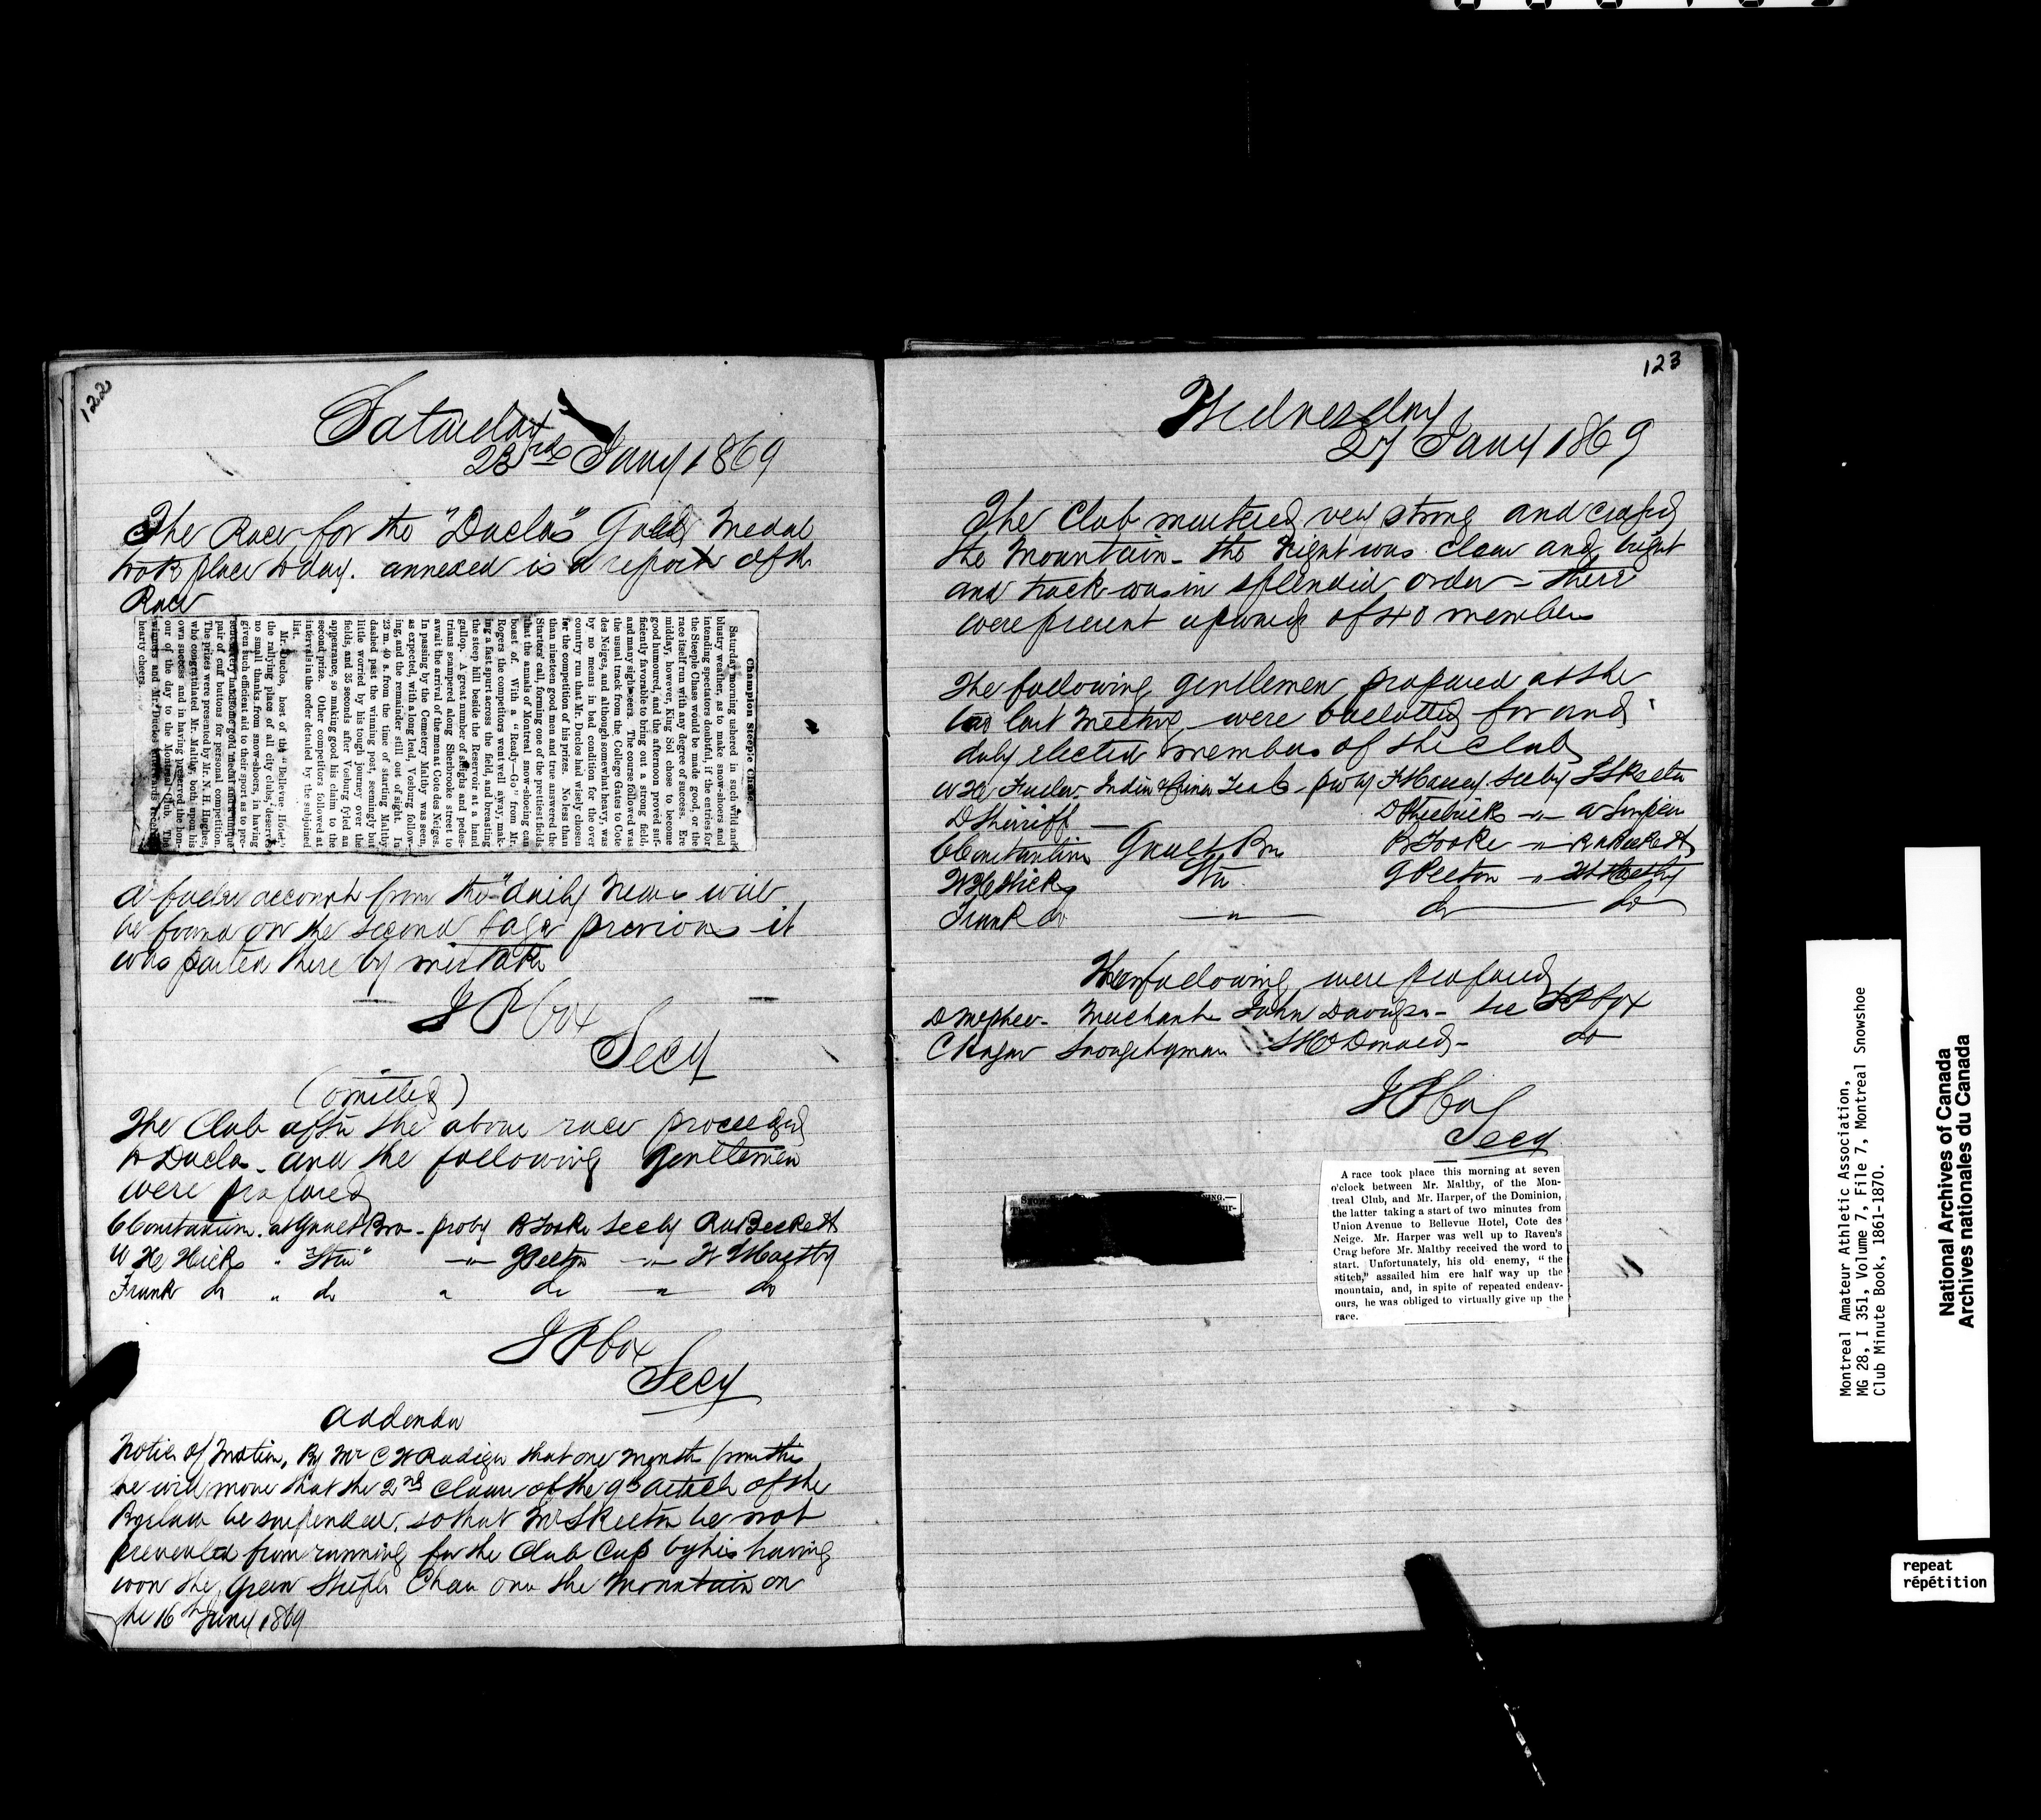 122
Saturday
23rd Jany 1869
The Race for the "Duclos" Gold Medal
took place today. annexed is a report of the
Race
Champion Steeple Chase.
Saturday morning ushered in such wild and
blustry weather, as to make snow-shoers and
intending spectators doubtful, if the entries for
the Steeple Chase would be made good, or the
race itself run with any degree of success. Ere
midday, however, King Sol chose to become
good humoured, and the afternoon proved suf-
ficiently favorable to bring out a strong field,
and many sightseers. The course followed was
the usual track from the College Gates to Cote
des Neiges, and although somewhat heavy, was
by no means in bad condition for the over
country run that Mr. Duclos had wisely chosen
for the competition of his prizes. No less than
than nineteen good men and true answered the
Starters' call, forming one of the prettiest fields
that the annals of Montreal snow-shoeing can
boast of. With a "Ready—Go" from Mr.
Rogers the competitors went well away, mak-
ing a fast spurt across the field, and breasting
the steep hill beside the Reservoir at a hand
gallop. A great number of sleighs and pedes-
trians scampered along Sherbrooke street to
await the arrival of the men at Cote des Neiges.
In passing by the Cemetery Maltby was seen,
as expected, with a long lead, Vosburg follow-
ing, and the remainder still out of sight. In
23 m. 40 s. from the time of starting Maltby
dashed past the winning post, seemingly but
little worried by his tough journey over the
fields, and 35 seconds after Vosburg tyled an
appearance, so making good his claim to the
second prize. Other competitors followed at
intervals in the order detailed by the subjoined
list.
Mr. Duclos, host of the "Bellevue Hotel,"
the rallying place of all city clubs, deserves
no small thanks from snow-shoers, in having
given such efficient aid to their sport as to pre-
sent a very handsome gold medal and a unique
pair of cuff buttons for personal competition.
The prizes were presented by Mr. N. H. Hughes,
who congratulated Mr. Maltby, both upon his
own success and in having preserved the hon-
our of the day to the Montreal Club. The
winners and Mr. Duclos afterwards received
hearty cheers.
a fuller account from the "daily News will
be found on the second page previous it
was pasted there by mistake
J P Cox
Secy
(omitted)
The Club after the above race proceeded
to Duclos. and the following gentlemen
were proposed
C Constantine. at Gault Bros - pro by R Tooke sec by R A Beckett
W H Hicks " "Star" —"— G Peeton —"— W L Maltby
Frank do " do " do —"— do
J P Cox
Secy
addenda
Notice of Motion. By Mr C W Radiger that one Month from this
he will move that the 2nd Clause of the 9th article of the
Byelaws be suspended. so that Mr Skeeton be not
prevented from running for the Club Cup by his having
won the Green Steeple Chase over the Mountain on
the 16th Jany 1869
123
Wednesday
27 Jany 1869
The Club mustered very strong and crossed
the Mountain - the Night was clear and bright
and track was in splendid order - there
were present upwards of 40 members
The following gentlemen proposed at the
last Meeting were ballotted for and
duly elected members of the Club
W H Fuller. India & China Tea Co - pro by Massey. sec by Skeeton
D Sherriff — —"— W Simpson
C Constantine Gault Bros R Tooke —"— R A Beckett
W H Hicks Star. G Peeton —"— W L Maltby
Frank do —"— do — do
The following were proposed
Merchant John Davidson - sec J P Cox
McDonald - do
J P Cox
Secy
A race took place this morning at seven
o'clock between Mr. Maltby, of the Mon-
treal Club, and Mr. Harper, of the Dominion,
the latter taking a start of two minutes from
Union Avenue to Bellevue Hotel, Cote des
Neige. Mr. Harper was well up to Raven's
Crag before Mr. Maltby received the word to
start. Unfortunately, his old enemy, "the
stitch," assailed him ere half way up the
mountain, and, in spite of repeated endeav-
ours, he was obliged to virtually give up the
race.
Montreal Amateur Athletic Association,
MG 28, I 351, Volume 7, File 7, Montreal Snowshoe
Club Minute Book, 1861-1870.
National Archives of Canada
Archives nationales du Canada
repeat
répétition